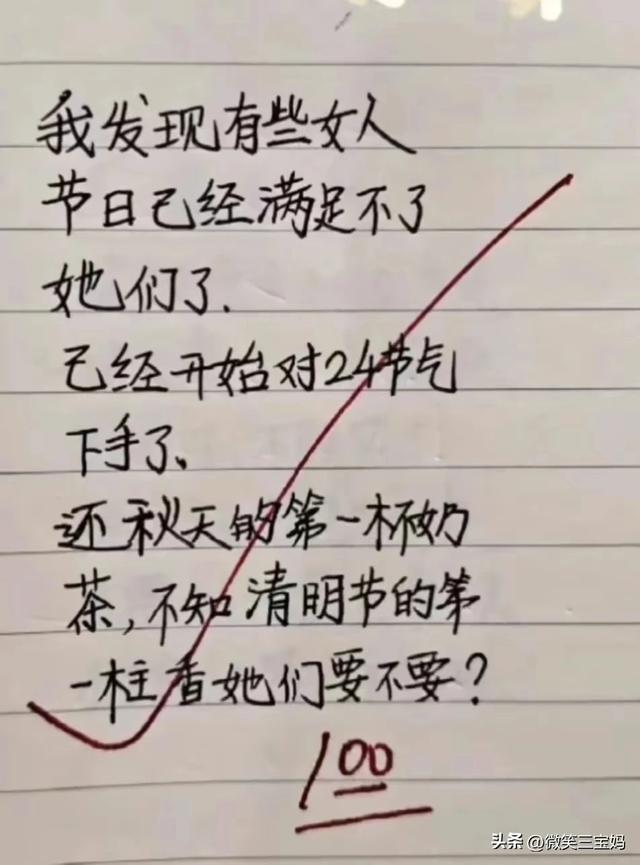 我发现有些女人
节日已经满足不了
她们了.
已经开始对24节气
下手了、
还秋天的第一杯奶
茶,不知清明节的第
一柱香她们要不要?
100
头条 @微笑三宝妈